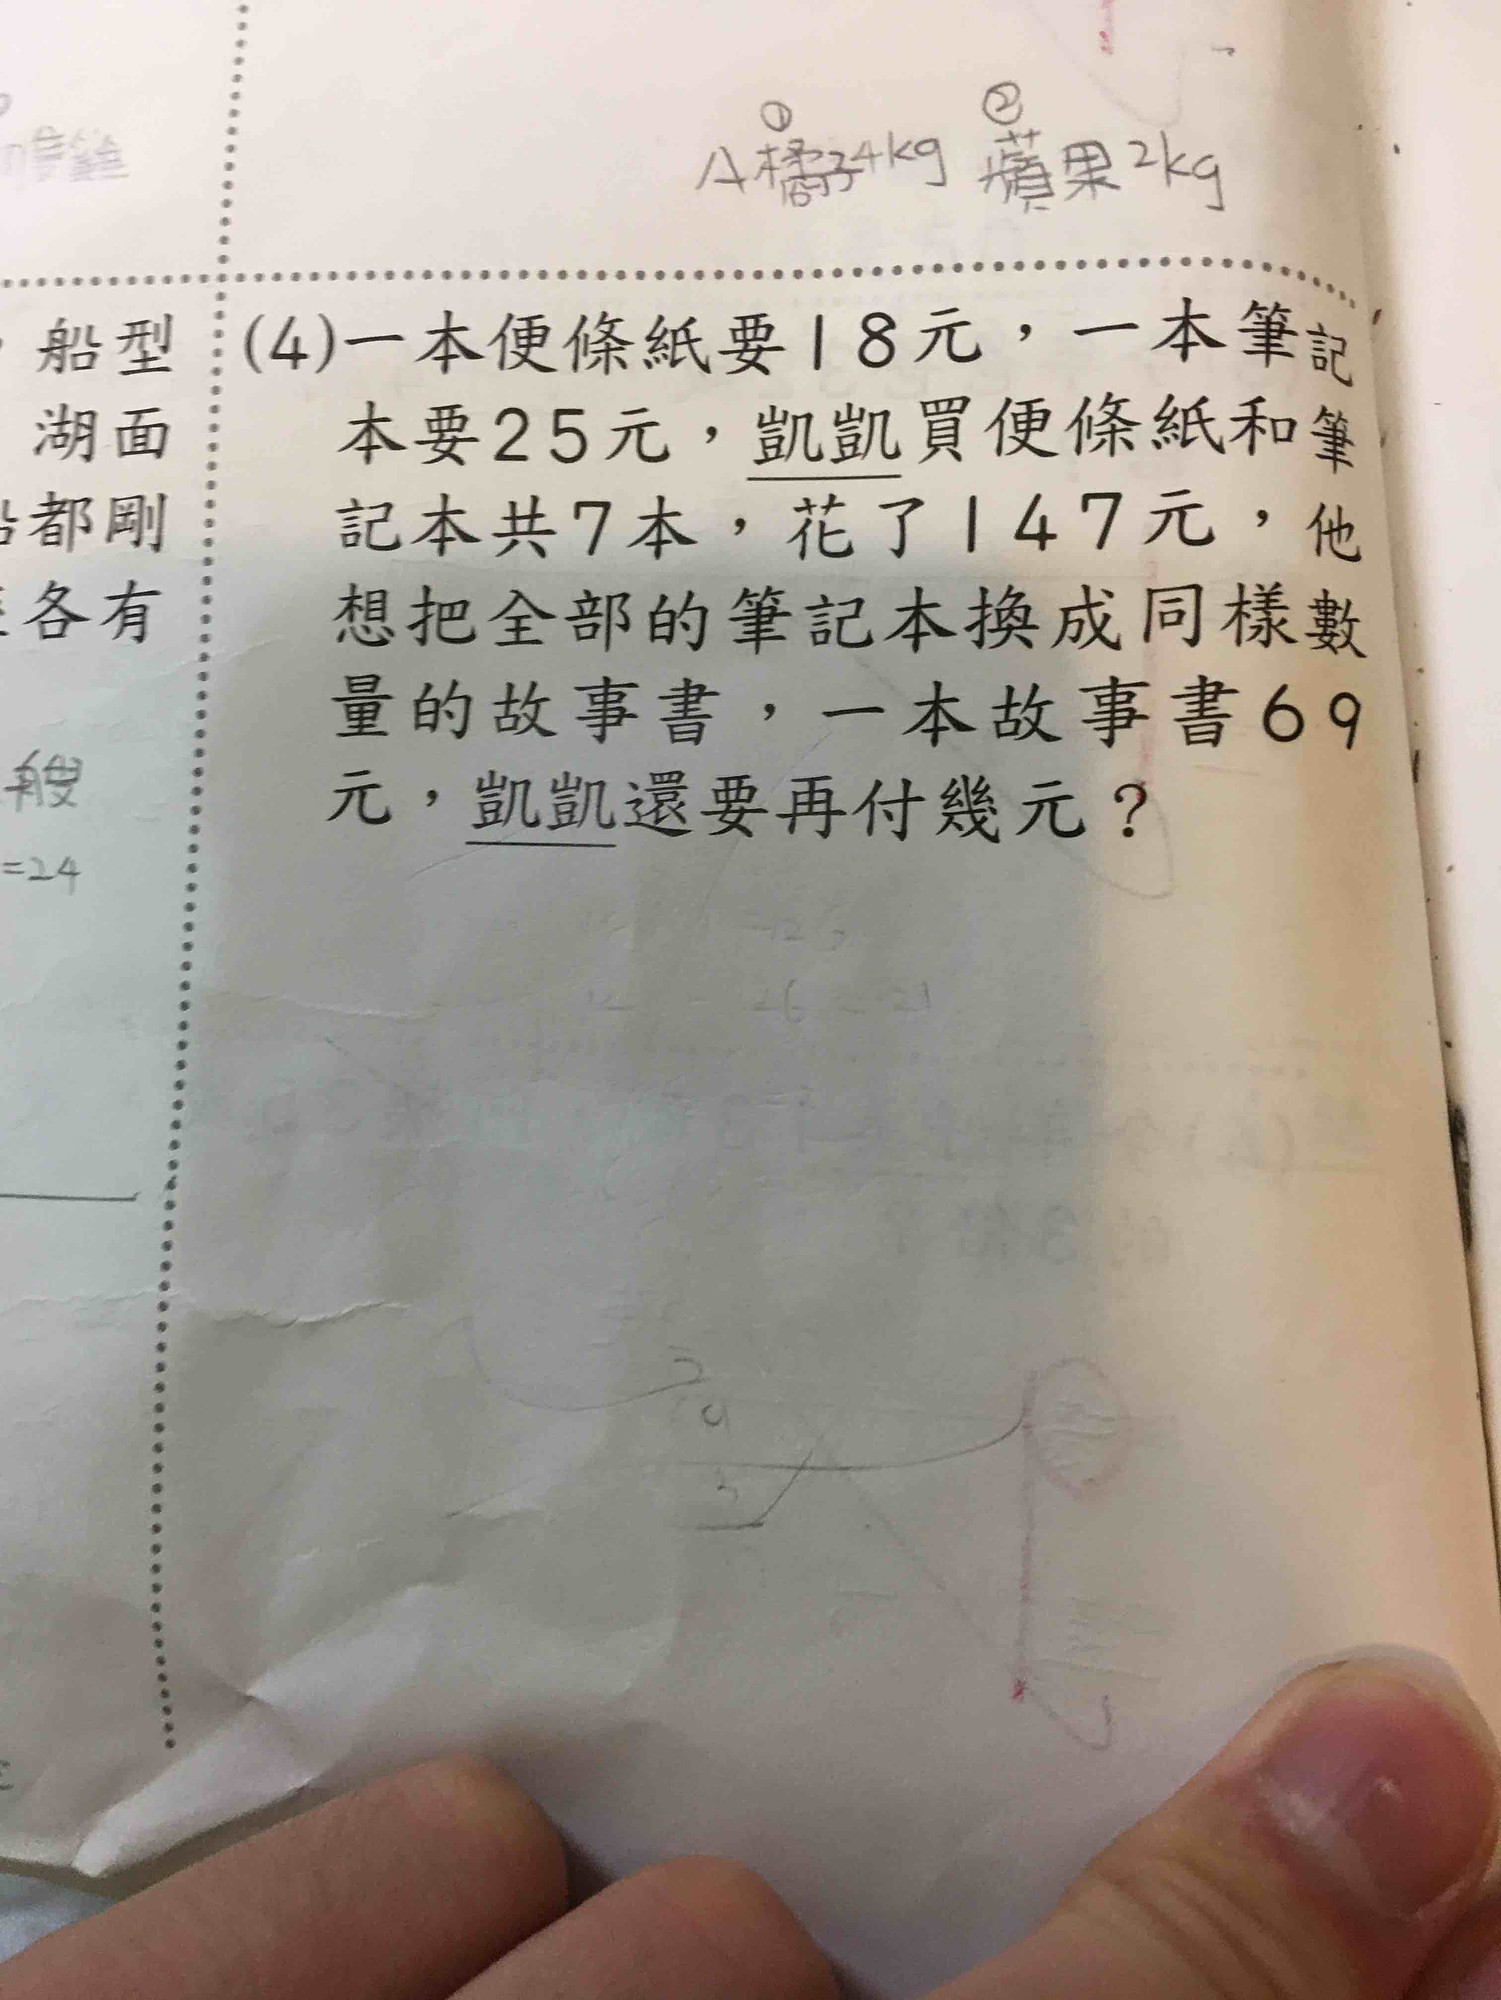 ① ②
A橘子4kg 蘋果2kg
船型
湖面
都剛
各有
艘
=24
(4)一本便條紙要18元，一本筆記
本要25元，凱凱買便條紙和筆
記本共7本，花了147元，他
想把全部的筆記本換成同樣數
量的故事書，一本故事書69
元，凱凱還要再付幾元？